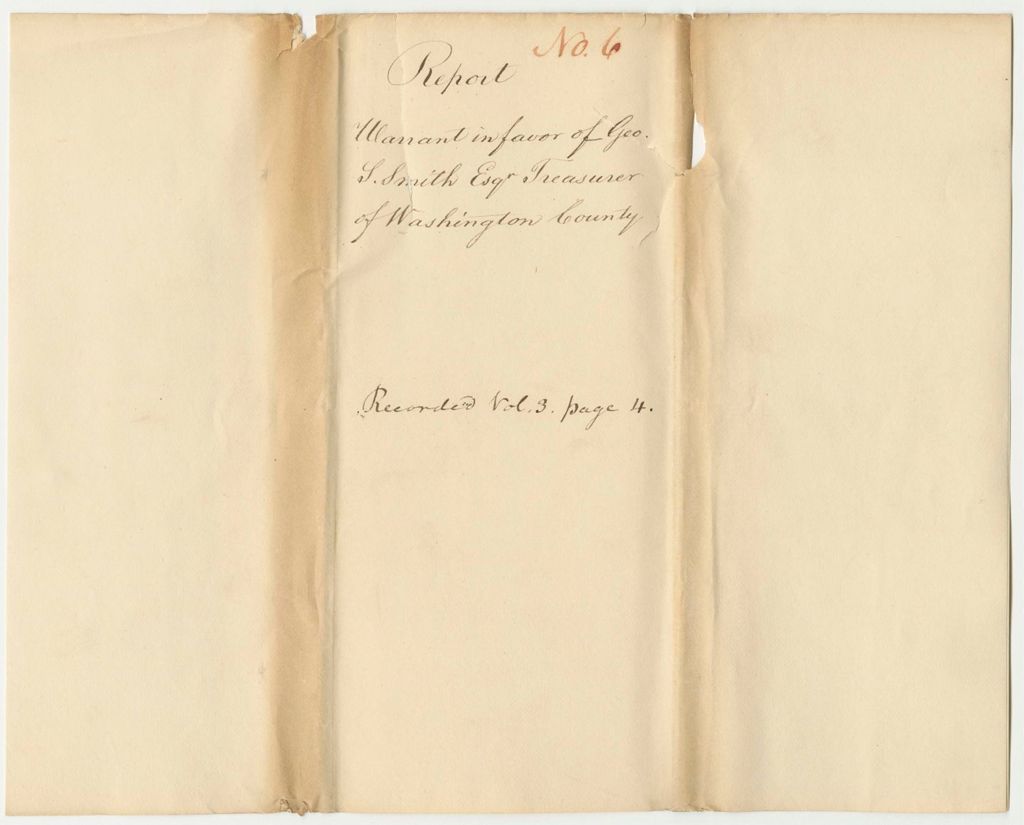 No. 6
Report
Warrant in favor of Geo.
S. Smith Esqr Treasurer
of Washington County
Recorded Vol. 3. page 4.